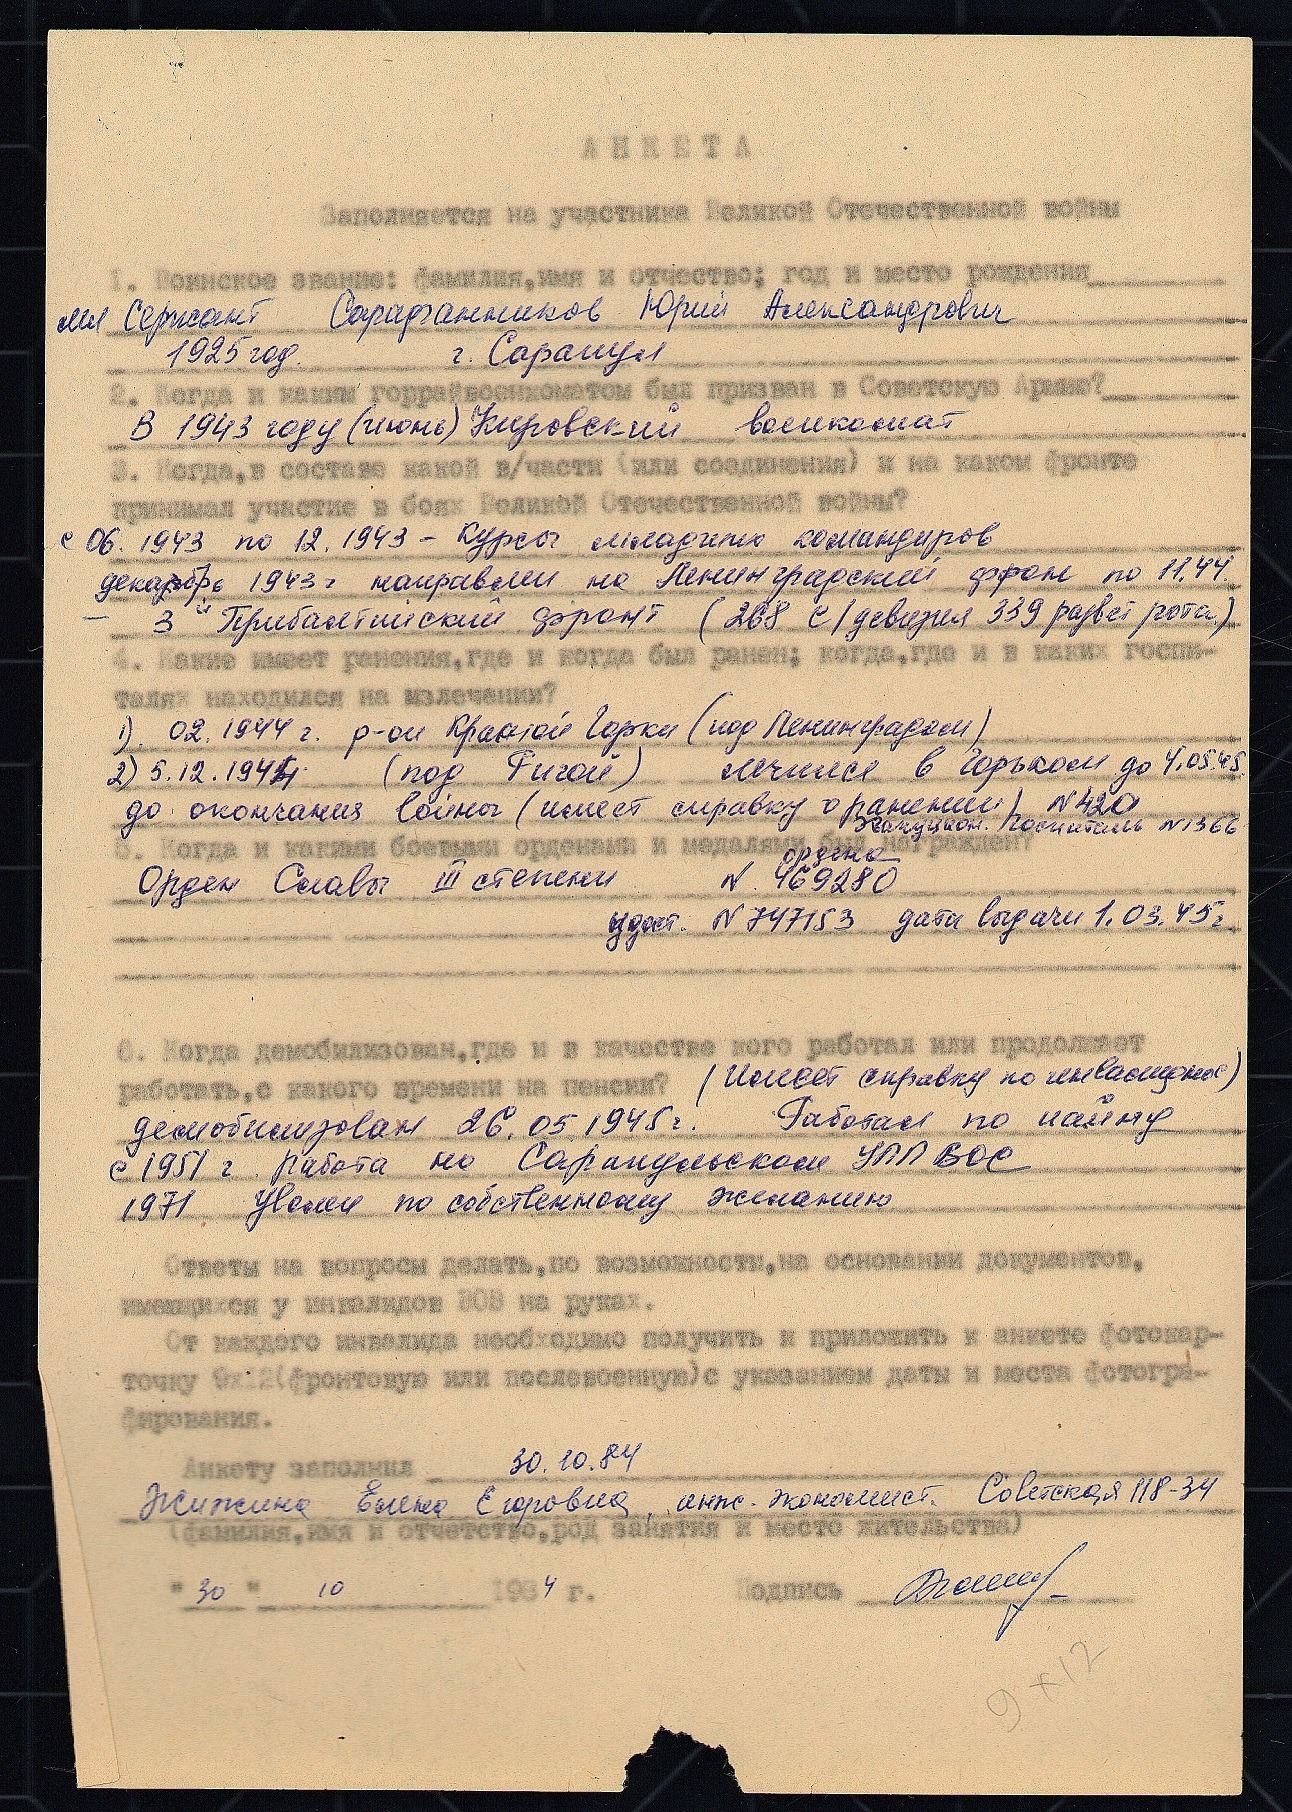 АНКЕТА
Заполняется на участника Великой Отечественной войны
1. Воинское звание: фамилия,имя и отчество; год и место рождения
мл Сержант Сарафанников Юрий Александрович
1925 год. г. Сарапул
2. Когда и каким горрайвоенкоматом был призван в Советскую Армию?
В 1943 году (июнь) Кировский военкомат
3. Когда,в составе какой в/части (или соединения) и на каком фронте
принимал участие в боях Великой Отечественной войны?
с 06. 1943 по 12. 1943 - Курсы младших командиров
декабрь 1943 г направлен на Ленинградский фрон по 11.44.
— 3й Прибалтийский фронт (268 с/дивизия 339 развет рота)
4. Какие имеет ранения,где и когда был ранен; когда,где и в каких госпи-
талях находился на излечении?
1). 02. 1944 г. р-он Красной Горки (под Ленинградом)
2) 5.12.1944. (под Ригой) лечился в Горьком до 4.05.45.
до окончания войны (имеет справку о ранении) N 420
эвакуацион. госпиталь N 1366
5. Когда и какими боевыми орденами и медалями был награжден?
ордена
Орден Славы III степени N. 469280
удост. N 747153 дата выдачи 1.03.45г.
6. Когда демобилизован,где и в качестве кого работал или продолжает
работать,с какого времени на пенсии? (Имеет справку по инвалидности)
демобилизован 26.05 1945 г. Работал по найму
с 1951 г работа на Сарапульском УПП ВОС
1971 Уволен по собственному желанию
Ответы на вопросы делать,по возможности,на основании документов,
имеющихся у инвалидов ВОВ на руках.
От каждого инвалида необходимо получить и приложить к анкете фотокар-
точку 9х12(фронтовую или послевоенную)с указанием даты и места фотогра-
фирования.
Анкету заполнил 30.10.84
Жижина Елена Егоровна, инж. экономист. Советская 118-34
(фамилия,имя и отчетство,род занятия и место жительства)
"30" 10 1984 г. Подпись
9 х 12